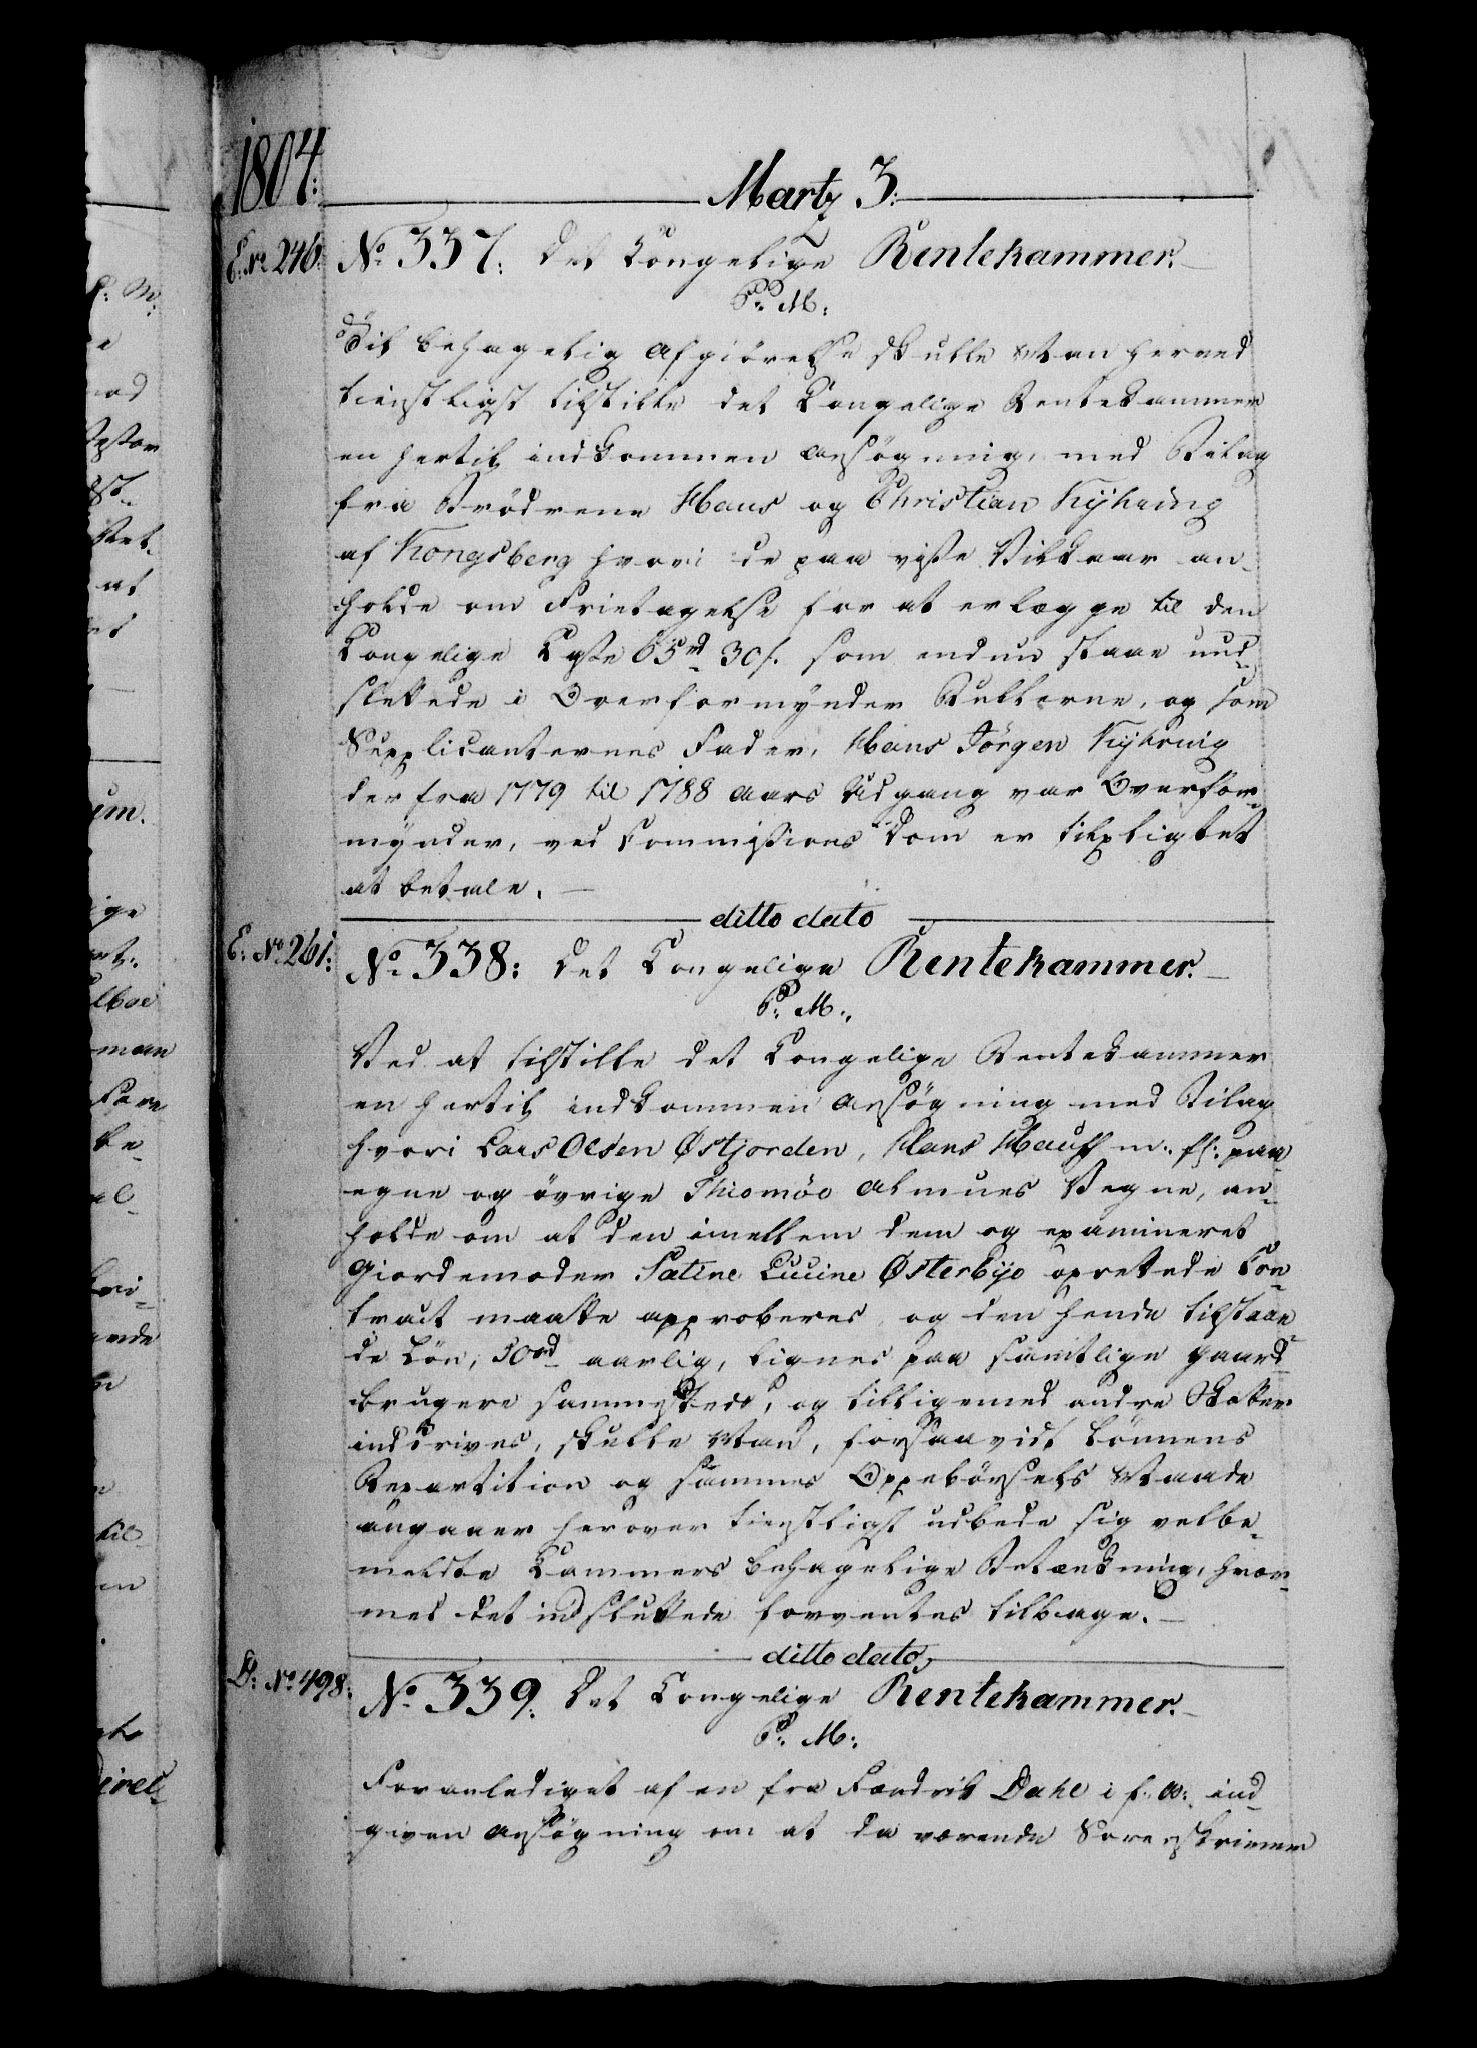 1804.
Martz 3.
E. No 246.
No 337. Det Kongelige Rentekammer.
P. M:
Til behagelig Afgiörelse skulle Man herved
tienstligst tilstille det Kongelige Rentekammer
en hertil indkommen Ansøgning, med Bilag
fra Brødrene Hans og Christian Nyhuig
af Kongsberg hvori de paa visse Vilkaar an-
holde om Frietagelse for at erlægge til den
Kongelige Casse 65rd 30s. som endnu staae uud-
slettede i Overformynder Rullerne, og som
Supplicanternes Fader, Hans Jörgen Nyhuig
der fra 1779 til 1788 Aars Udgang var Overfor-
mynder, ved Commissions Dom er tilpligtet
at betale. —
ditto dato
E. No 261:
No 338: Det Kongelige Rentekammer.
P. M:
Ved at tilstille det Kongelige Rentekammer
en hertil indkommen Ansøgning med Bilag
hvori Lars Olsen Østjorden, Hans Hauff m: fl: paa
egne og övrige Thiomöe Almues Vegne, an-
holde om at den imellem dem og examineret
Giordemoder Satine Lucine Østerbye oprettede Con-
tract maatte approberes, og den hende tilstaae-
de Lön, 50rd aarlig, lignes paa samtlige Gaard-
brugere sammesteds, og tilligemed andre Skatter
inddrives, skulle Man, forsaavidt Lönnens
Repartition og sammes Oppebörsels Maade
angaaer herover tienstligst udbede sig velbe-
meldte Kammers behagelige Betænkning, hvor-
med det indsluttede forventes tilbage. —
ditto dato,
D: No 498:
No 339: Det Kongelige Rentekammer.
P. M:
Foranlediget af en fra Fændrik Dahl i f: A: ind-
given Ansøgning om at da værende Sorenskriver